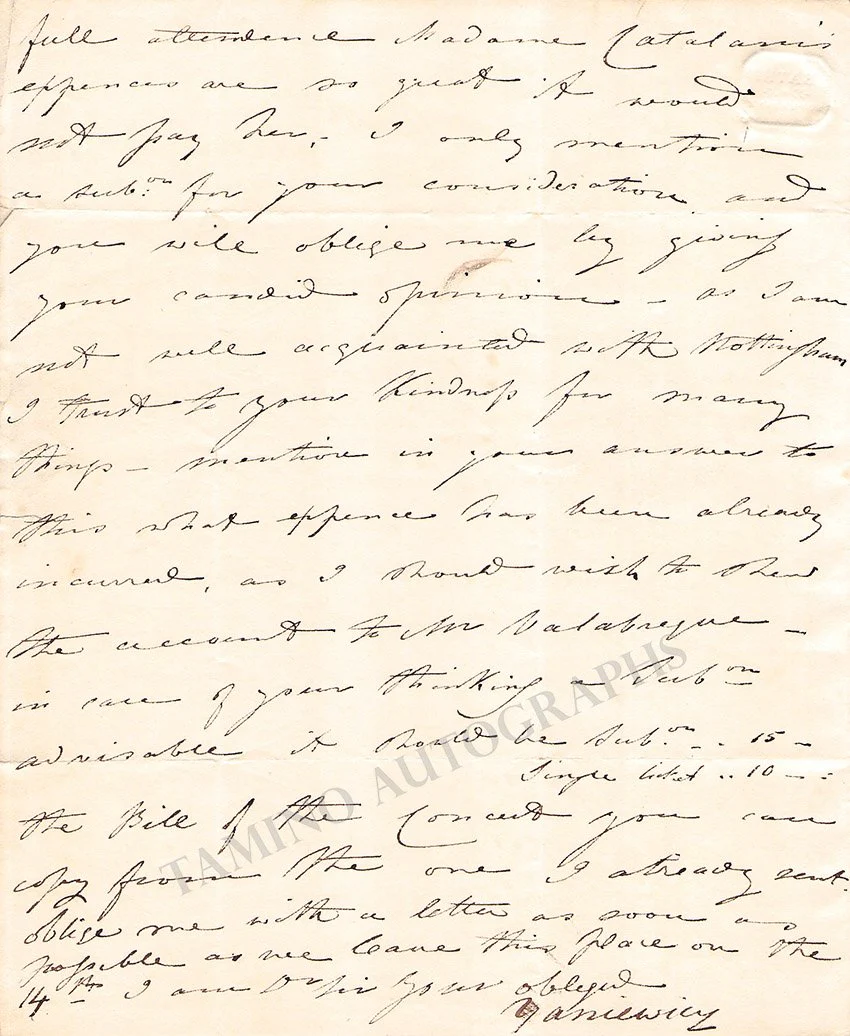 full attendence Madame Catalani's
expences are so great it would
not pay her, - I only mention
a sub.on for your consideration and
you will oblige me by giving
your candid opinion - as I am
not well acquainted with Nottingham
I trust to your Kindness for many
things - mention in your answer to
this what expence has been already
incurred, as I should wish to shew
the account to Mr Valabreque -
in case of your thinking a Subon
advisable it should be Sub.on - . 15 -
Single ticket .. 10 - - :
the Bill of the Concert you can
copy from the one I already sent.
oblige me with a letter as soon as
possible as we leave this place on the
14th I am Dr Sir Your obliged
Yaniewicz
TAMINO AUTOGRAPHS